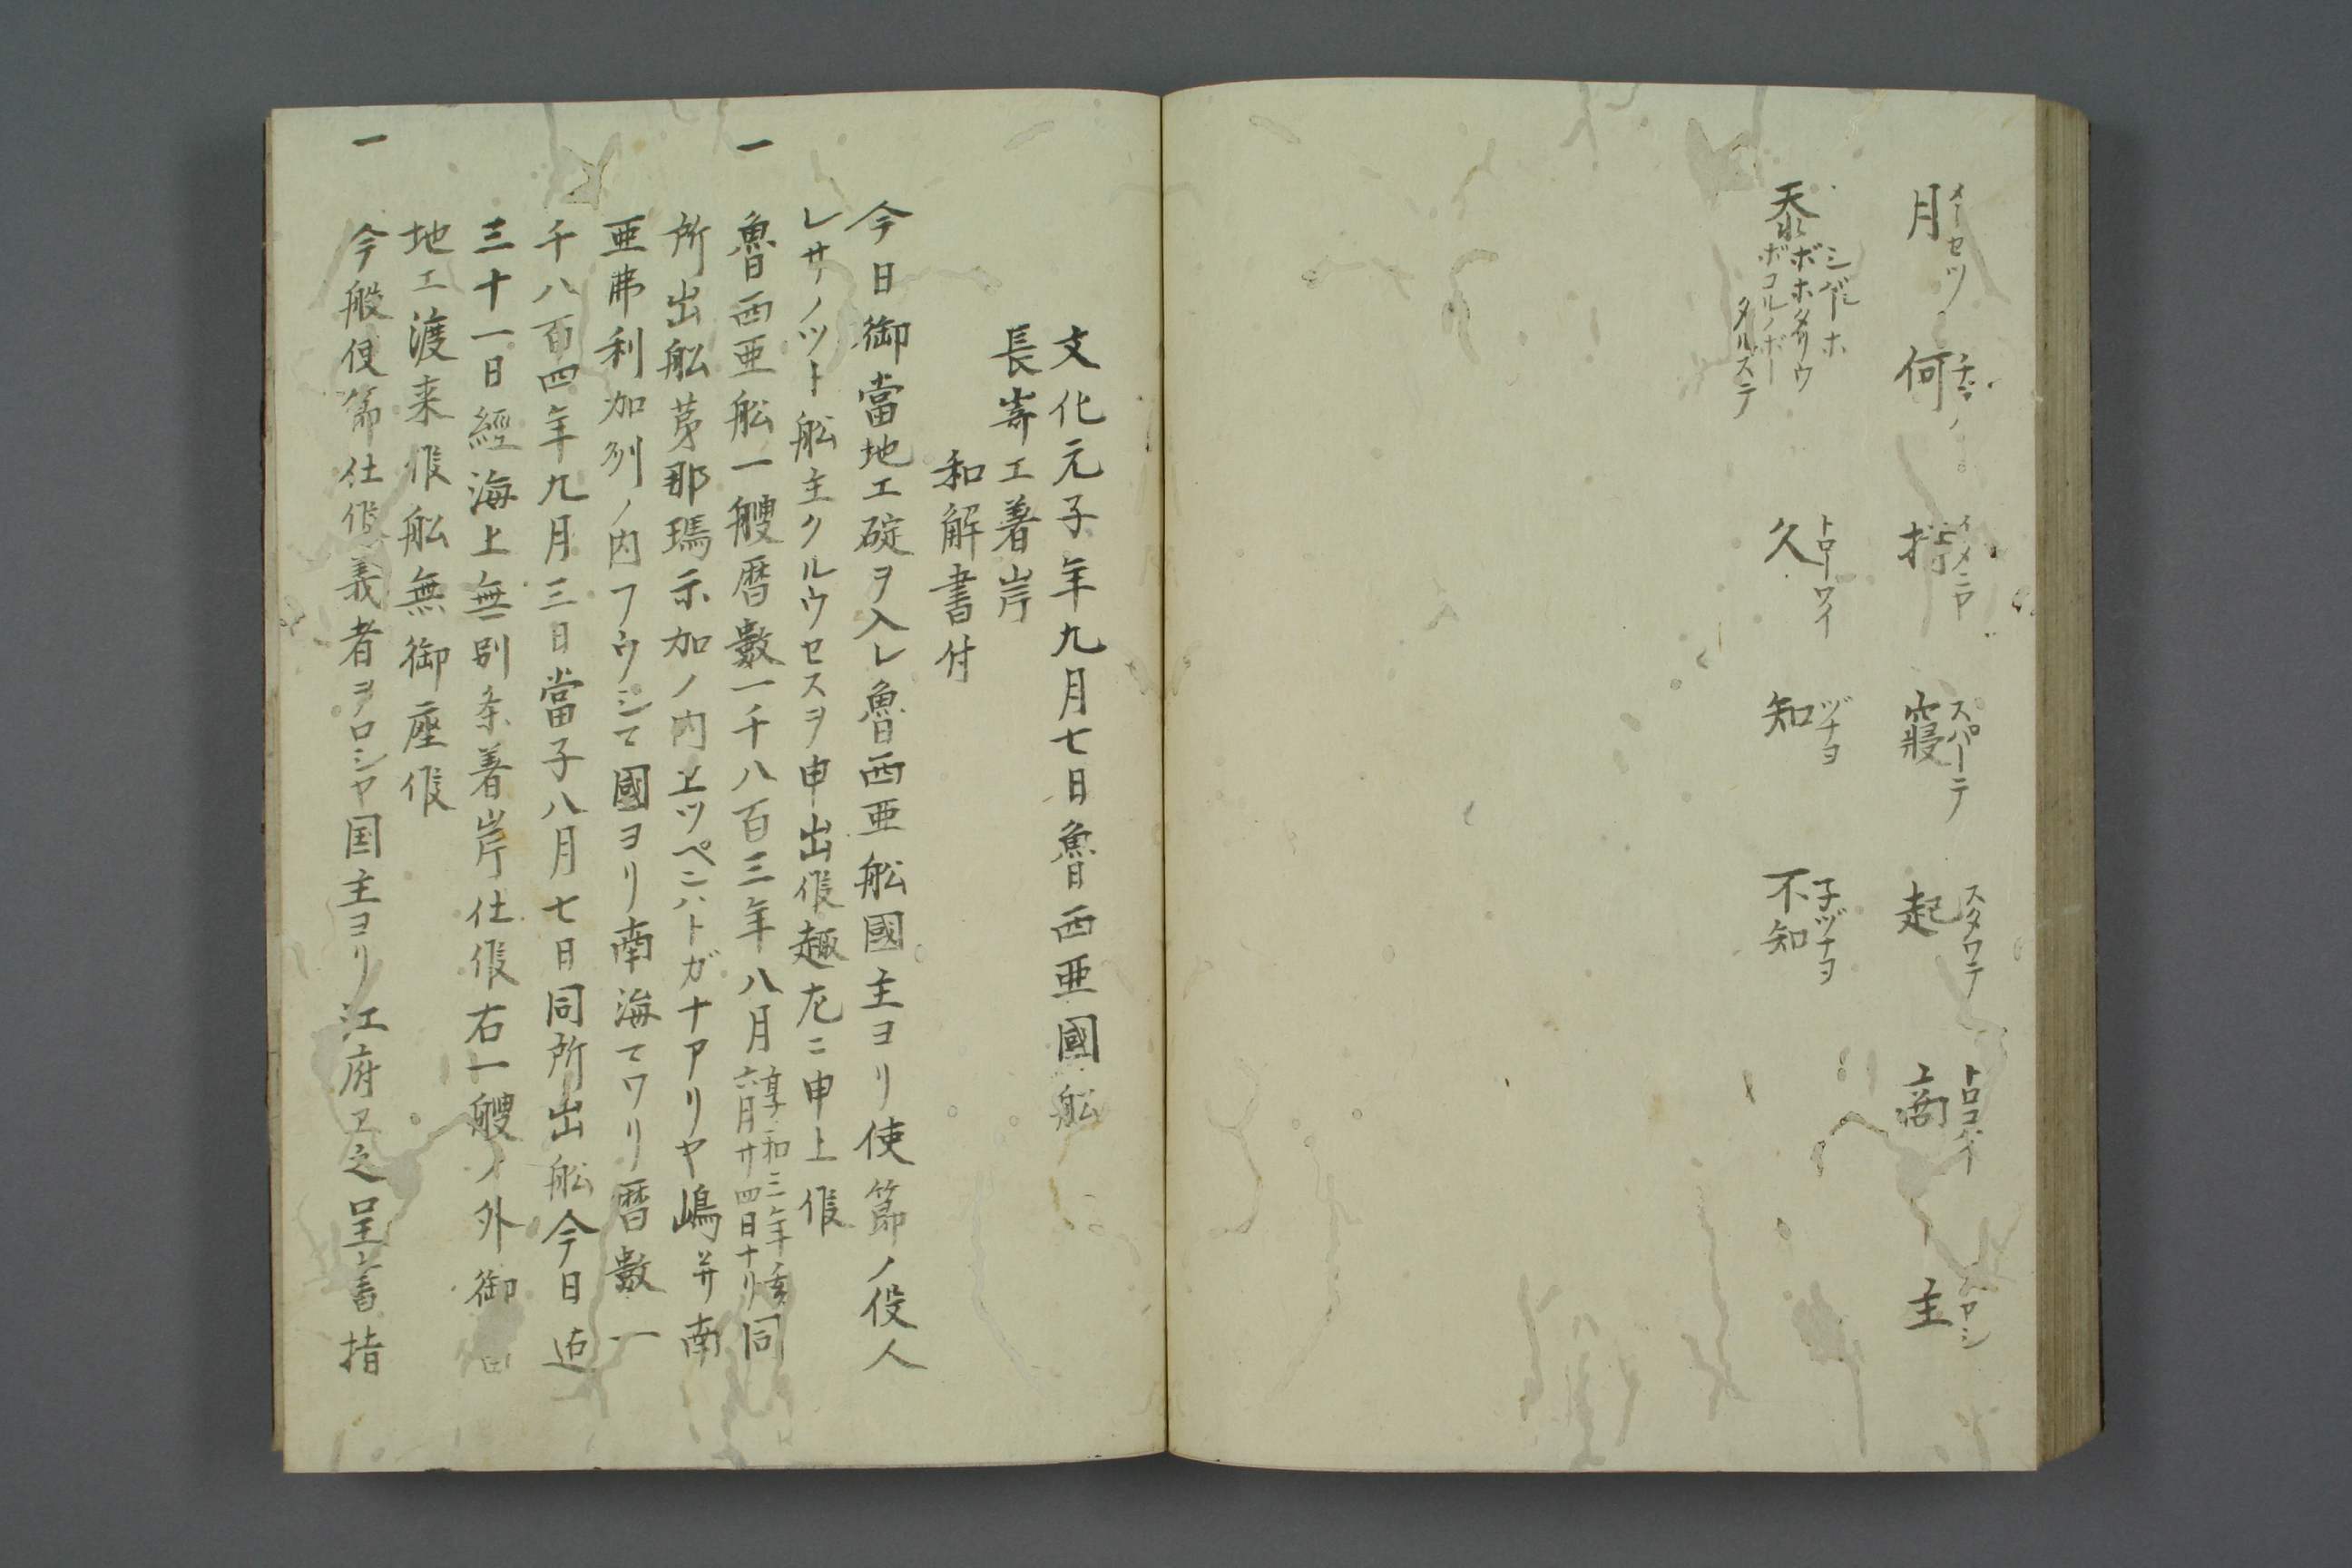 月 メーセツ 何 指 寢 スパーテ 起 スタワテ 商 トロコワイ 主
忝 シバシホ ボホタリウ ボコルノボー タルステ 久 トローワイ 知 ヅナヨ 不知 子ヅナヨ
文化元子年九月七日魯西亜國舩
長嵜エ著岸
和解書付
今日御當地エ碇ヲ入レ魯西亜舩國主ヨリ使節ノ役人
レサノツト舩主クルウセスヲ申出候趣左ニ申上候
一 魯西亜舩一艘暦數一千八百三年八月 享和三年亥六月廿四日ナリ 同
所出舩第那瑪尓加ノ内エツペンハトガナアリヤ嶋并南
亜弗利加列ノ内フウシテ國ヨリ南海マワリ暦數一
千八百四年九月三日當子八月七日同所出舩今日迠
三十一日經海上無別条着岸仕候右一艘ノ外御當
地エ渡来候舩無御座候
一 今般使節仕候義者ヲロシヤ国主ヨリ江府エ之呈書指